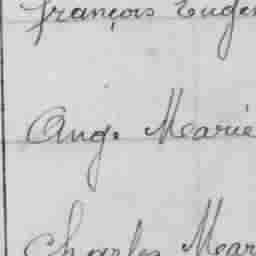 françois Eugèn
Aug. Marie
Charles Mar